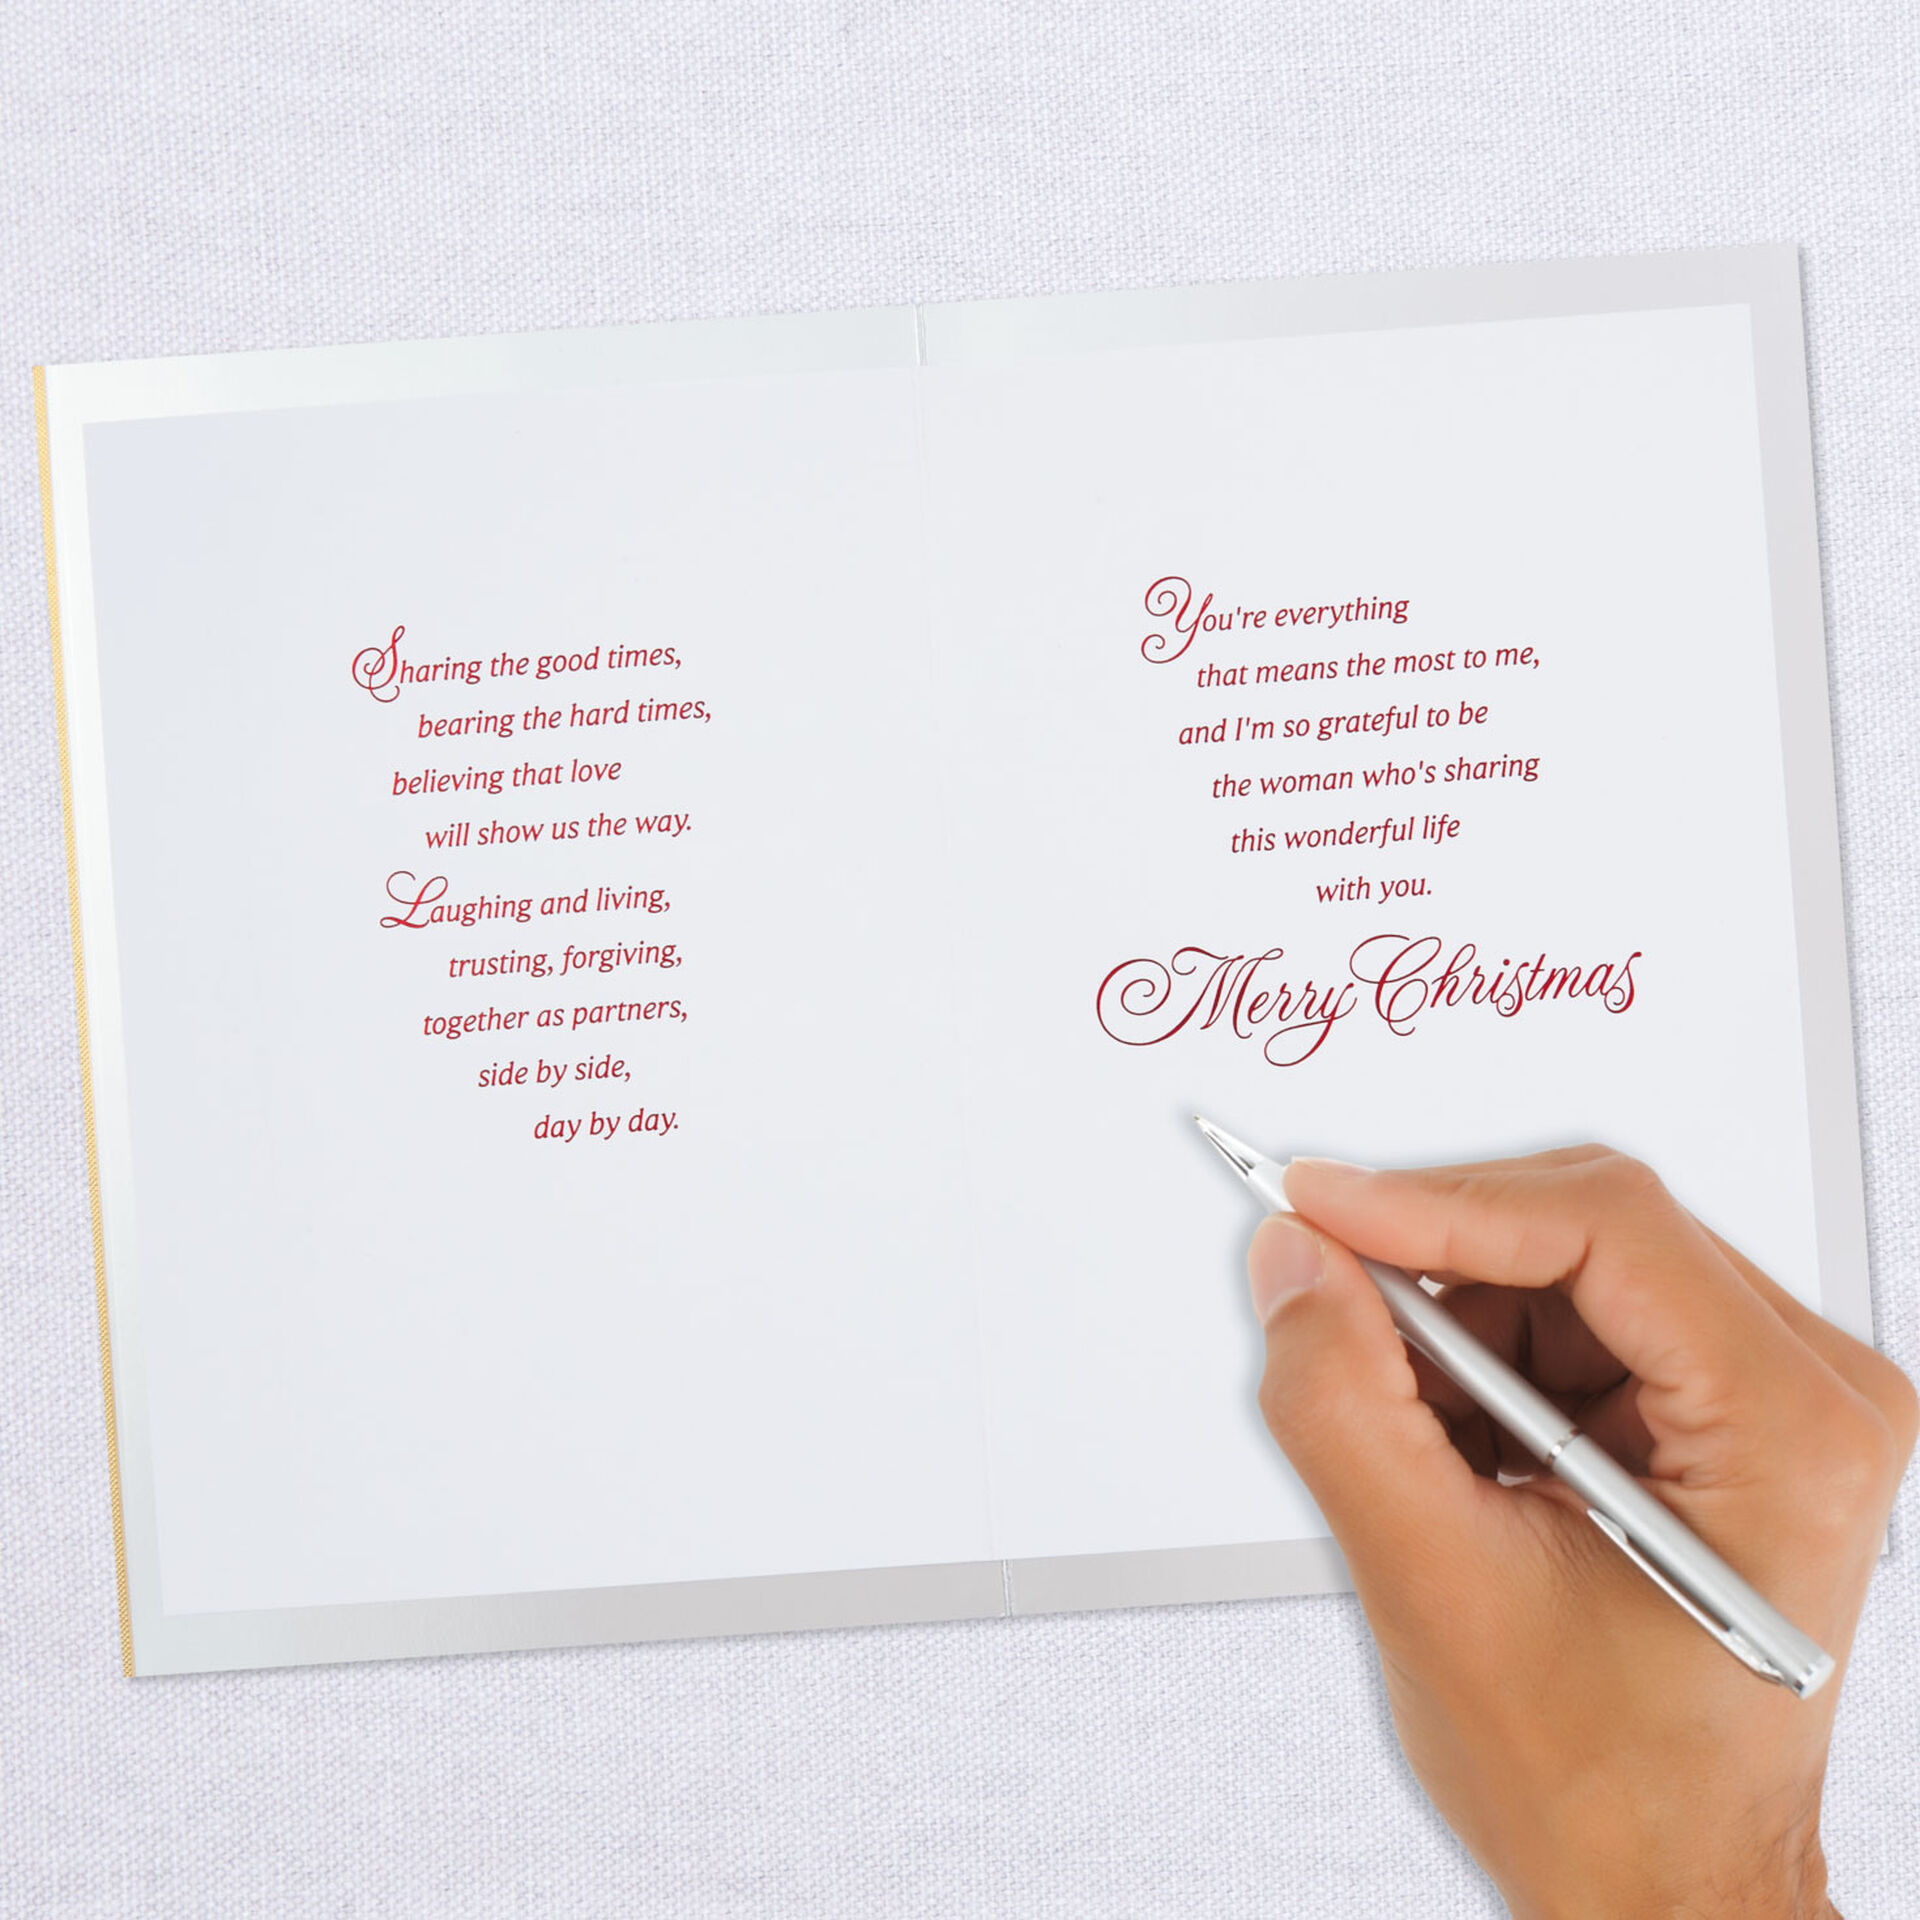 Sharing the good times,
bearing the hard times,
believing that love
will show us the way.
Laughing and living,
trusting, forgiving,
together as partners,
side by side,
day by day.
You're everything
that means the most to me,
and I'm so grateful to be
the woman who's sharing
this wonderful life
with you.
Merry Christmas